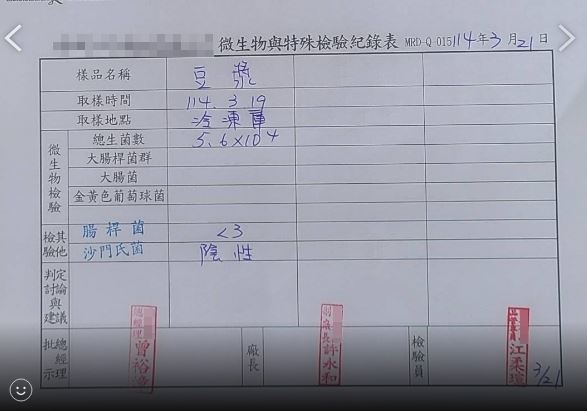 微生物與特殊檢驗紀錄表 MRD-Q-015 114年3月21日
樣品名稱 豆漿
取樣時間 114. 3. 19
取樣地點 冷凍庫
微生物檢驗
總生菌數 5.6×10⁴
大腸桿菌群
大腸菌
金黃色葡萄球菌
其他檢驗
腸桿菌 <3
沙門氏菌 陰性
判定討論與建議
總經理批示 總經理 曾裕
廠長 副廠長 許永和
檢驗員 江柔瑄 3/21